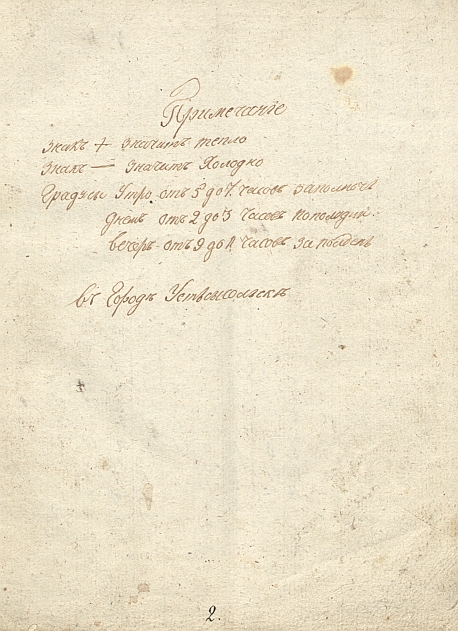 Примечанiе
знакъ + значитъ тепло
знакъ — значитъ Холодно
Градусы Утро отъ 5 до 7. часовъ заполночь
днемъ отъ 2 до 3 часовъ
вечеръ отъ 9 до часовъ
въ Городѣ Устьсысольскѣ
2.